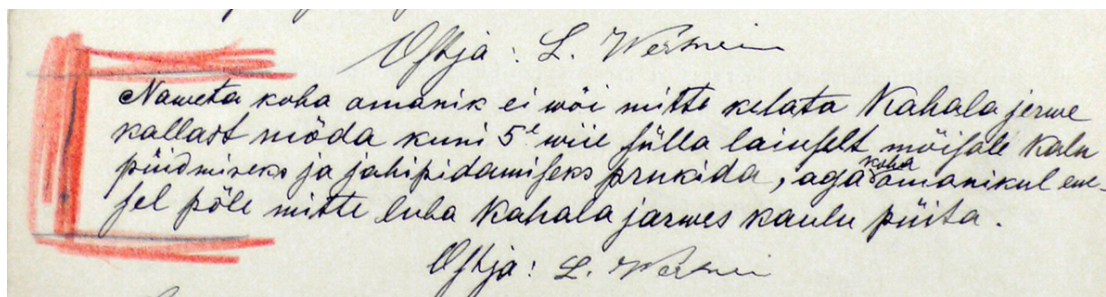 Ostja: L. Wersnein
Naweta koha omanik ei wõi mitte kelata Kahala jerwe
kallast mööda kuni 5e wiie sülla laiuselt mõisale Kalu
püidmiseks ja jahipidamiseks prukida, aga koha omanikul ene-
sel põle mitte luba Kahala jarwes kaulu püita.
Ostja: L. Wersnein